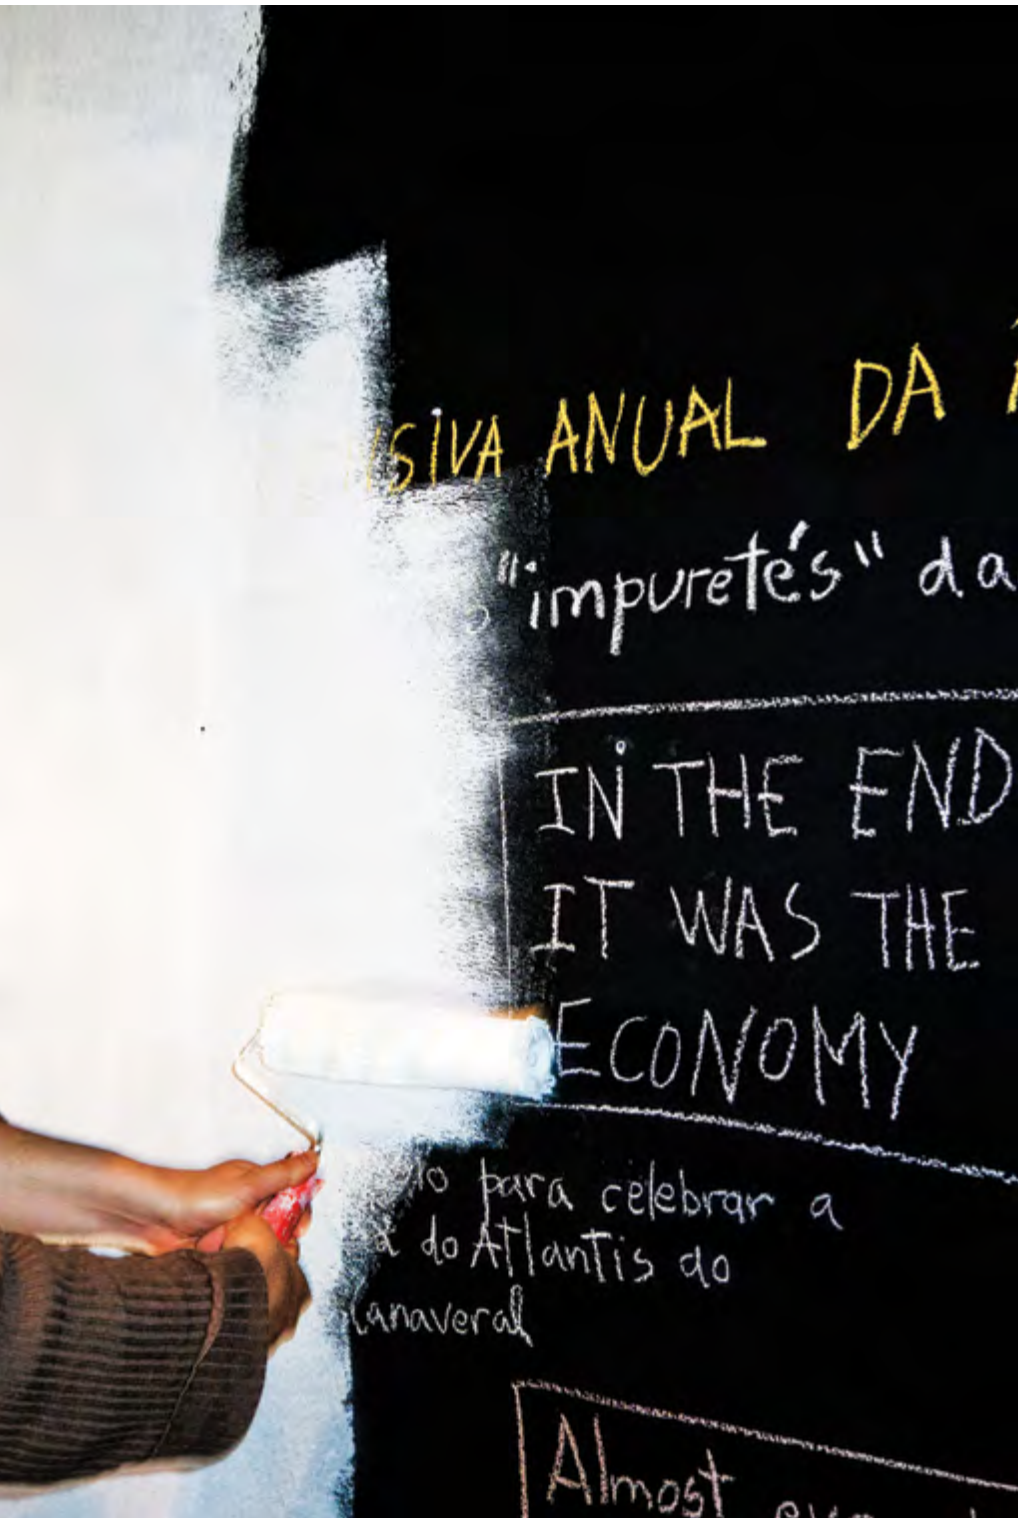 ENSIVA ANUAL DA
"impuretés" da
IN THE END
IT WAS THE
ECONOMY
para celebrar a
do Atlantis do
Canaveral
Almost